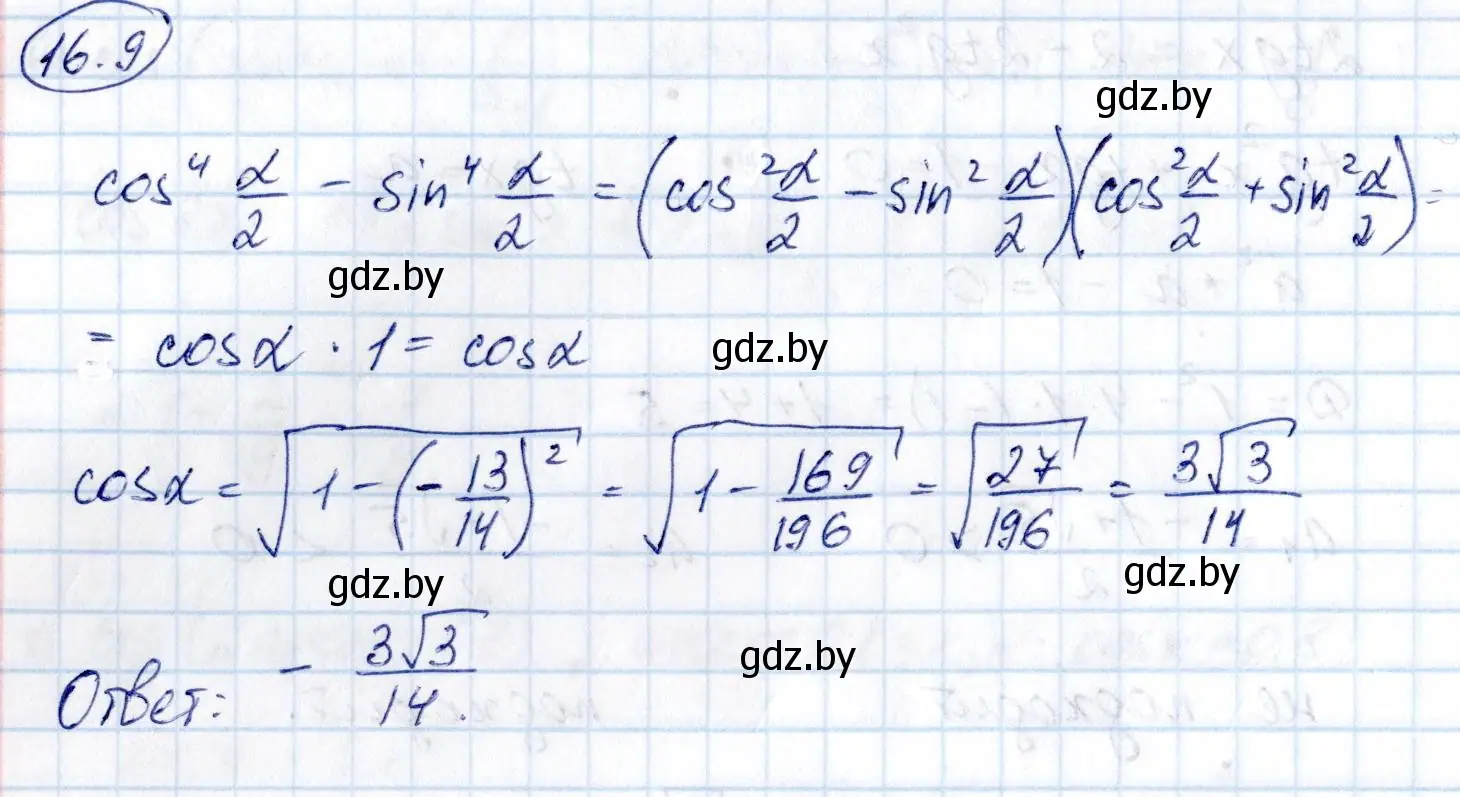 16.9
gdz.by
cos⁴ α/2 − sin⁴ α/2 = (cos² α/2 − sin² α/2)(cos² α/2 + sin² α/2) =
gdz.by
= cosα · 1 = cosα gdz.by
cosα = √(1 − (−13/14)²) = √(1 − 169/196) = √(27/196) = 3√3/14
gdz.by gdz.by
Ответ: − 3√3/14. gdz.by